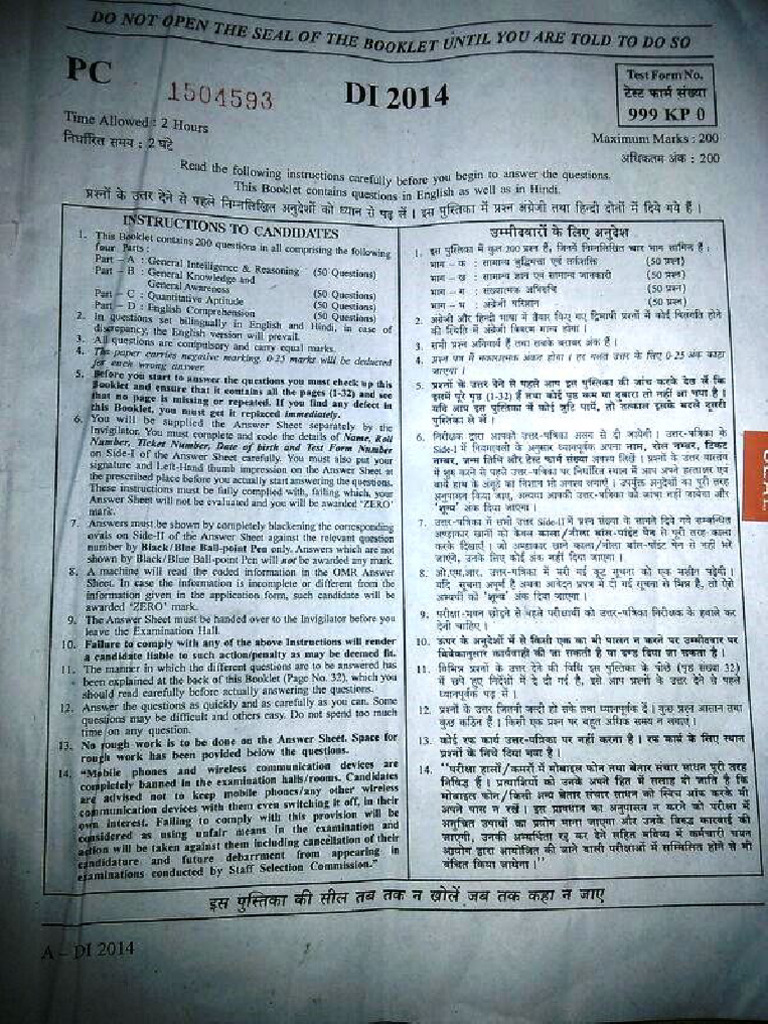 DO NOT OPEN THE SEAL OF THE BOOKLET UNTIL YOU ARE TOLD TO DO SO
PC
1504593
DI 2014
Test Form No.
टेस्ट फार्म संख्या
999 KP 0
Time Allowed : 2 Hours
निर्धारित समय : 2 घंटे
Maximum Marks : 200
अधिकतम अंक : 200
Read the following instructions carefully before you begin to answer the questions.
This Booklet contains questions in English as well as in Hindi.
प्रश्नों के उत्तर देने से पहले निम्नलिखित अनुदेशों को ध्यान से पढ़ लें । इस पुस्तिका में प्रश्न अंग्रेजी तथा हिन्दी दोनों में दिये गये हैं ।
INSTRUCTIONS TO CANDIDATES
1. This Booklet contains 200 questions in all comprising the following
four Parts :
Part – A : General Intelligence & Reasoning (50 Questions)
Part – B : General Knowledge and
General Awareness (50 Questions)
Part – C : Quantitative Aptitude (50 Questions)
Part – D : English Comprehension (50 Questions)
2. In questions set bilingually in English and Hindi, in case of
discrepancy, the English version will prevail.
3. All questions are compulsory and carry equal marks.
4. The paper carries negative marking. 0.25 marks will be deducted
for each wrong answer.
5. Before you start to answer the questions you must check up this
Booklet and ensure that it contains all the pages (1-32) and see
that no page is missing or repeated. If you find any defect in
this Booklet, you must get it replaced immediately.
6. You will be supplied the Answer Sheet separately by the
Invigilator. You must complete and code the details of Name, Roll
Number, Ticket Number, Date of birth and Test Form Number
on Side-I of the Answer Sheet carefully. You must also put your
signature and Left-Hand thumb impression on the Answer Sheet at
the prescribed place before you actually start answering the questions.
These instructions must be fully complied with, failing which, your
Answer Sheet will not be evaluated and you will be awarded 'ZERO'
mark.
7. Answers must be shown by completely blackening the corresponding
ovals on Side-II of the Answer Sheet against the relevant question
number by Black/Blue Ball-point Pen only. Answers which are not
shown by Black/Blue Ball-point Pen will not be awarded any mark.
8. A machine will read the coded information in the OMR Answer
Sheet. In case the information is incomplete or different from the
information given in the application form, such candidate will be
awarded 'ZERO' mark.
9. The Answer Sheet must be handed over to the Invigilator before you
leave the Examination Hall.
10. Failure to comply with any of the above Instructions will render
a candidate liable to such action/penalty as may be deemed fit.
11. The manner in which the different questions are to be answered has
been explained at the back of this Booklet (Page No. 32), which you
should read carefully before actually answering the questions.
12. Answer the questions as quickly and as carefully as you can. Some
questions may be difficult and others easy. Do not spend too much
time on any question.
13. No rough work is to be done on the Answer Sheet. Space for
rough work has been povided below the questions.
14. "Mobile phones and wireless communication devices are
completely banned in the examination halls/rooms. Candidates
are advised not to keep mobile phones/any other wireless
communication devices with them even switching it off, in their
own interest. Failing to comply with this provision will be
considered as using unfair means in the examination and
action will be taken against them including cancellation of their
candidature and future debarrment from appearing in
examinations conducted by Staff Selection Commission."
उम्मीदवारों के लिए अनुदेश
1. इस पुस्तिका में कुल 200 प्रश्न हैं, जिनमें निम्नलिखित चार भाग शामिल हैं :
भाग – क : सामान्य बुद्धिमत्ता एवं तर्कशक्ति (50 प्रश्न)
भाग – ख : सामान्य ज्ञान एवं सामान्य जानकारी (50 प्रश्न)
भाग – ग : संख्यात्मक अभिरुचि (50 प्रश्न)
भाग – घ : अंग्रेजी परिज्ञान (50 प्रश्न)
2. अंग्रेजी और हिन्दी भाषा में तैयार किए गए द्विभाषी प्रश्नों में कोई विसंगति होने
की स्थिति में अंग्रेजी विवरण मान्य होगा ।
3. सभी प्रश्न अनिवार्य हैं तथा सबके बराबर अंक हैं ।
4. प्रश्न पत्र में नकारात्मक अंकन होगा । हर गलत उत्तर के लिए 0.25 अंक काटा
जाएगा ।
5. प्रश्नों के उत्तर देने से पहले आप इस पुस्तिका की जांच करके देख लें कि
इसमें पूरे पृष्ठ (1-32) हैं तथा कोई पृष्ठ कम या दुबारा तो नहीं आ गया है ।
यदि आप इस पुस्तिका में कोई त्रुटि पायें, तो तत्काल इसके बदले दूसरी
पुस्तिका ले लें ।
6. निरीक्षक द्वारा आपको उत्तर-पत्रिका अलग से दी जायेगी । उत्तर-पत्रिका के
7. उत्तर-पत्रिका में सभी उत्तर Side-II में प्रश्न संख्या के सामने दिये गये सम्बन्धित
9. परीक्षा-भवन छोड़ने से पहले परीक्षार्थी को उत्तर-पत्रिका निरीक्षक के हवाले कर
देनी चाहिए ।
10. ऊपर के अनुदेशों में से किसी एक का भी पालन न करने पर उम्मीदवार पर
विवेकानुसार कार्यवाही की जा सकती है या दण्ड दिया जा सकता है ।
11. विभिन्न प्रश्नों के उत्तर देने की विधि इस पुस्तिका के पीछे (पृष्ठ संख्या 32)
में छपे हुए निर्देशों में दे दी गई है, इसे आप प्रश्नों के उत्तर देने से पहले
ध्यानपूर्वक पढ़ लें ।
12. प्रश्नों के उत्तर जितनी जल्दी हो सके तथा ध्यानपूर्वक दें । कुछ प्रश्न आसान तथा
कुछ कठिन हैं । किसी एक प्रश्न पर बहुत अधिक समय न लगाएं ।
13. कोई रफ कार्य उत्तर-पत्रिका पर नहीं करना है । रफ कार्य के लिए स्थान
प्रश्नों के निचे दिया गया है ।
14. "परीक्षा हालों/कमरों में मोबाइल फोन तथा बेतार संचार साधन पूरी तरह
निषिद्ध हैं । प्रत्याशियों को उनके अपने हित में सलाह दी जाती है कि
मोबाइल फोन/किसी अन्य बेतार संचार साधन को स्विच ऑफ करके भी
अपने पास न रखें । इस प्रावधान का अनुपालन न करने को परीक्षा में
अनुचित उपायों का प्रयोग माना जाएगा और उनके विरुद्ध कारवाई की
जाएगी, उनकी अभ्यर्थिता रद्द कर देने सहित भविष्य में कर्मचारी चयन
आयोग द्वारा आयोजित की जाने वाली परीक्षाओं में सम्मिलित होने से भी
वंचित किया जायेगा ।"
इस पुस्तिका की सील तब तक न खोलें जब तक कहा न जाए
A – DI 2014
SEAL